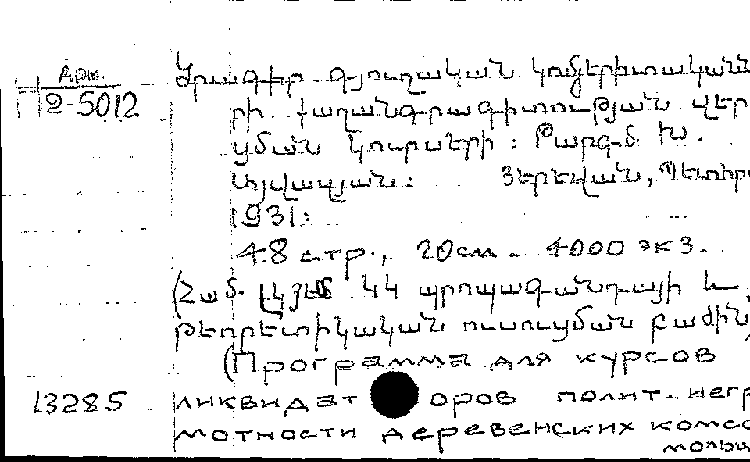 Арм.
П 2-5012
Ծրագիր գյուղական կոմերիտական
րի քաղանգրագիտության վեր
ցման կուրսերի: Թարգմ. Խ.
Այվազյան: Յերեվան, Պետհր
1931:
48 стр., 20см. 4000 экз.
(Համ. ԼԿՅԵՄ ԿԿ պրոպագանդայի և
թեորետիկական ուսուցման բաժին)
(Программа для курсов
13285 ликвидаторов полит. негра
мотности деревенских комсо
мольц